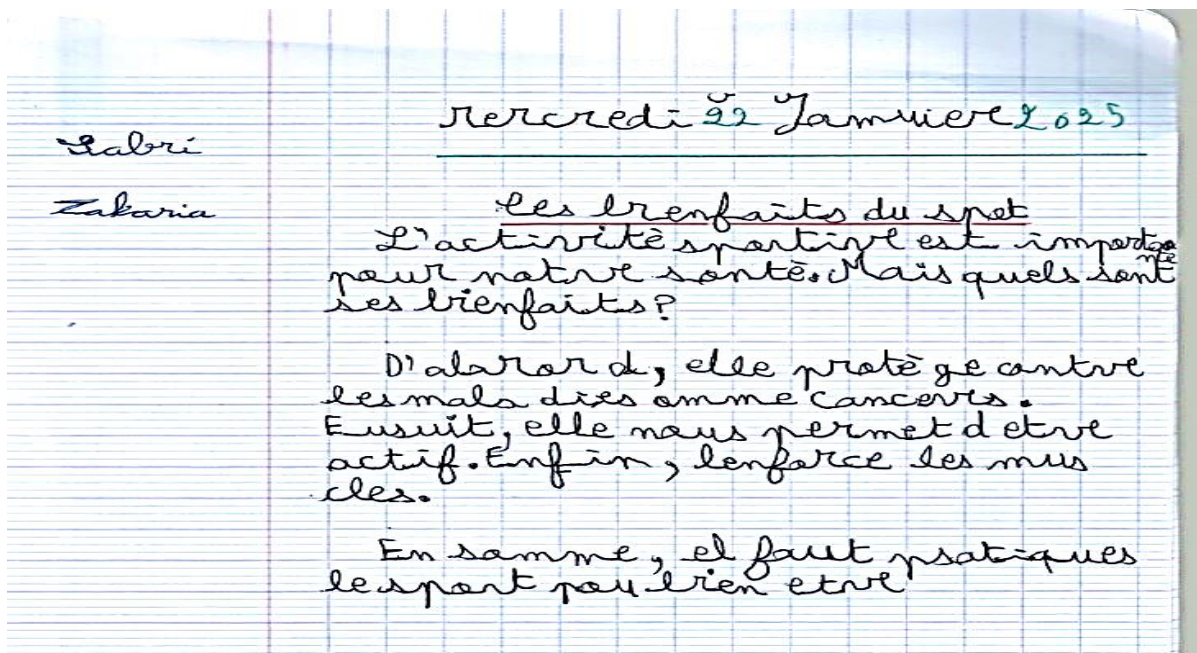 Mercredi 22 Janvier 2025
Sabri
Zakaria
les bienfaits du spot
L'activitè sportive est importante
pour notre santè. Mais quels sont
ses bienfaits?
D'abarord, elle protège contre
les mala dies omme cancers.
Eusuit, elle nous permet d etre
actif. Enfin, lenforce les mus
cles.
En somme, el faut psatiques
le sport pou bien etre